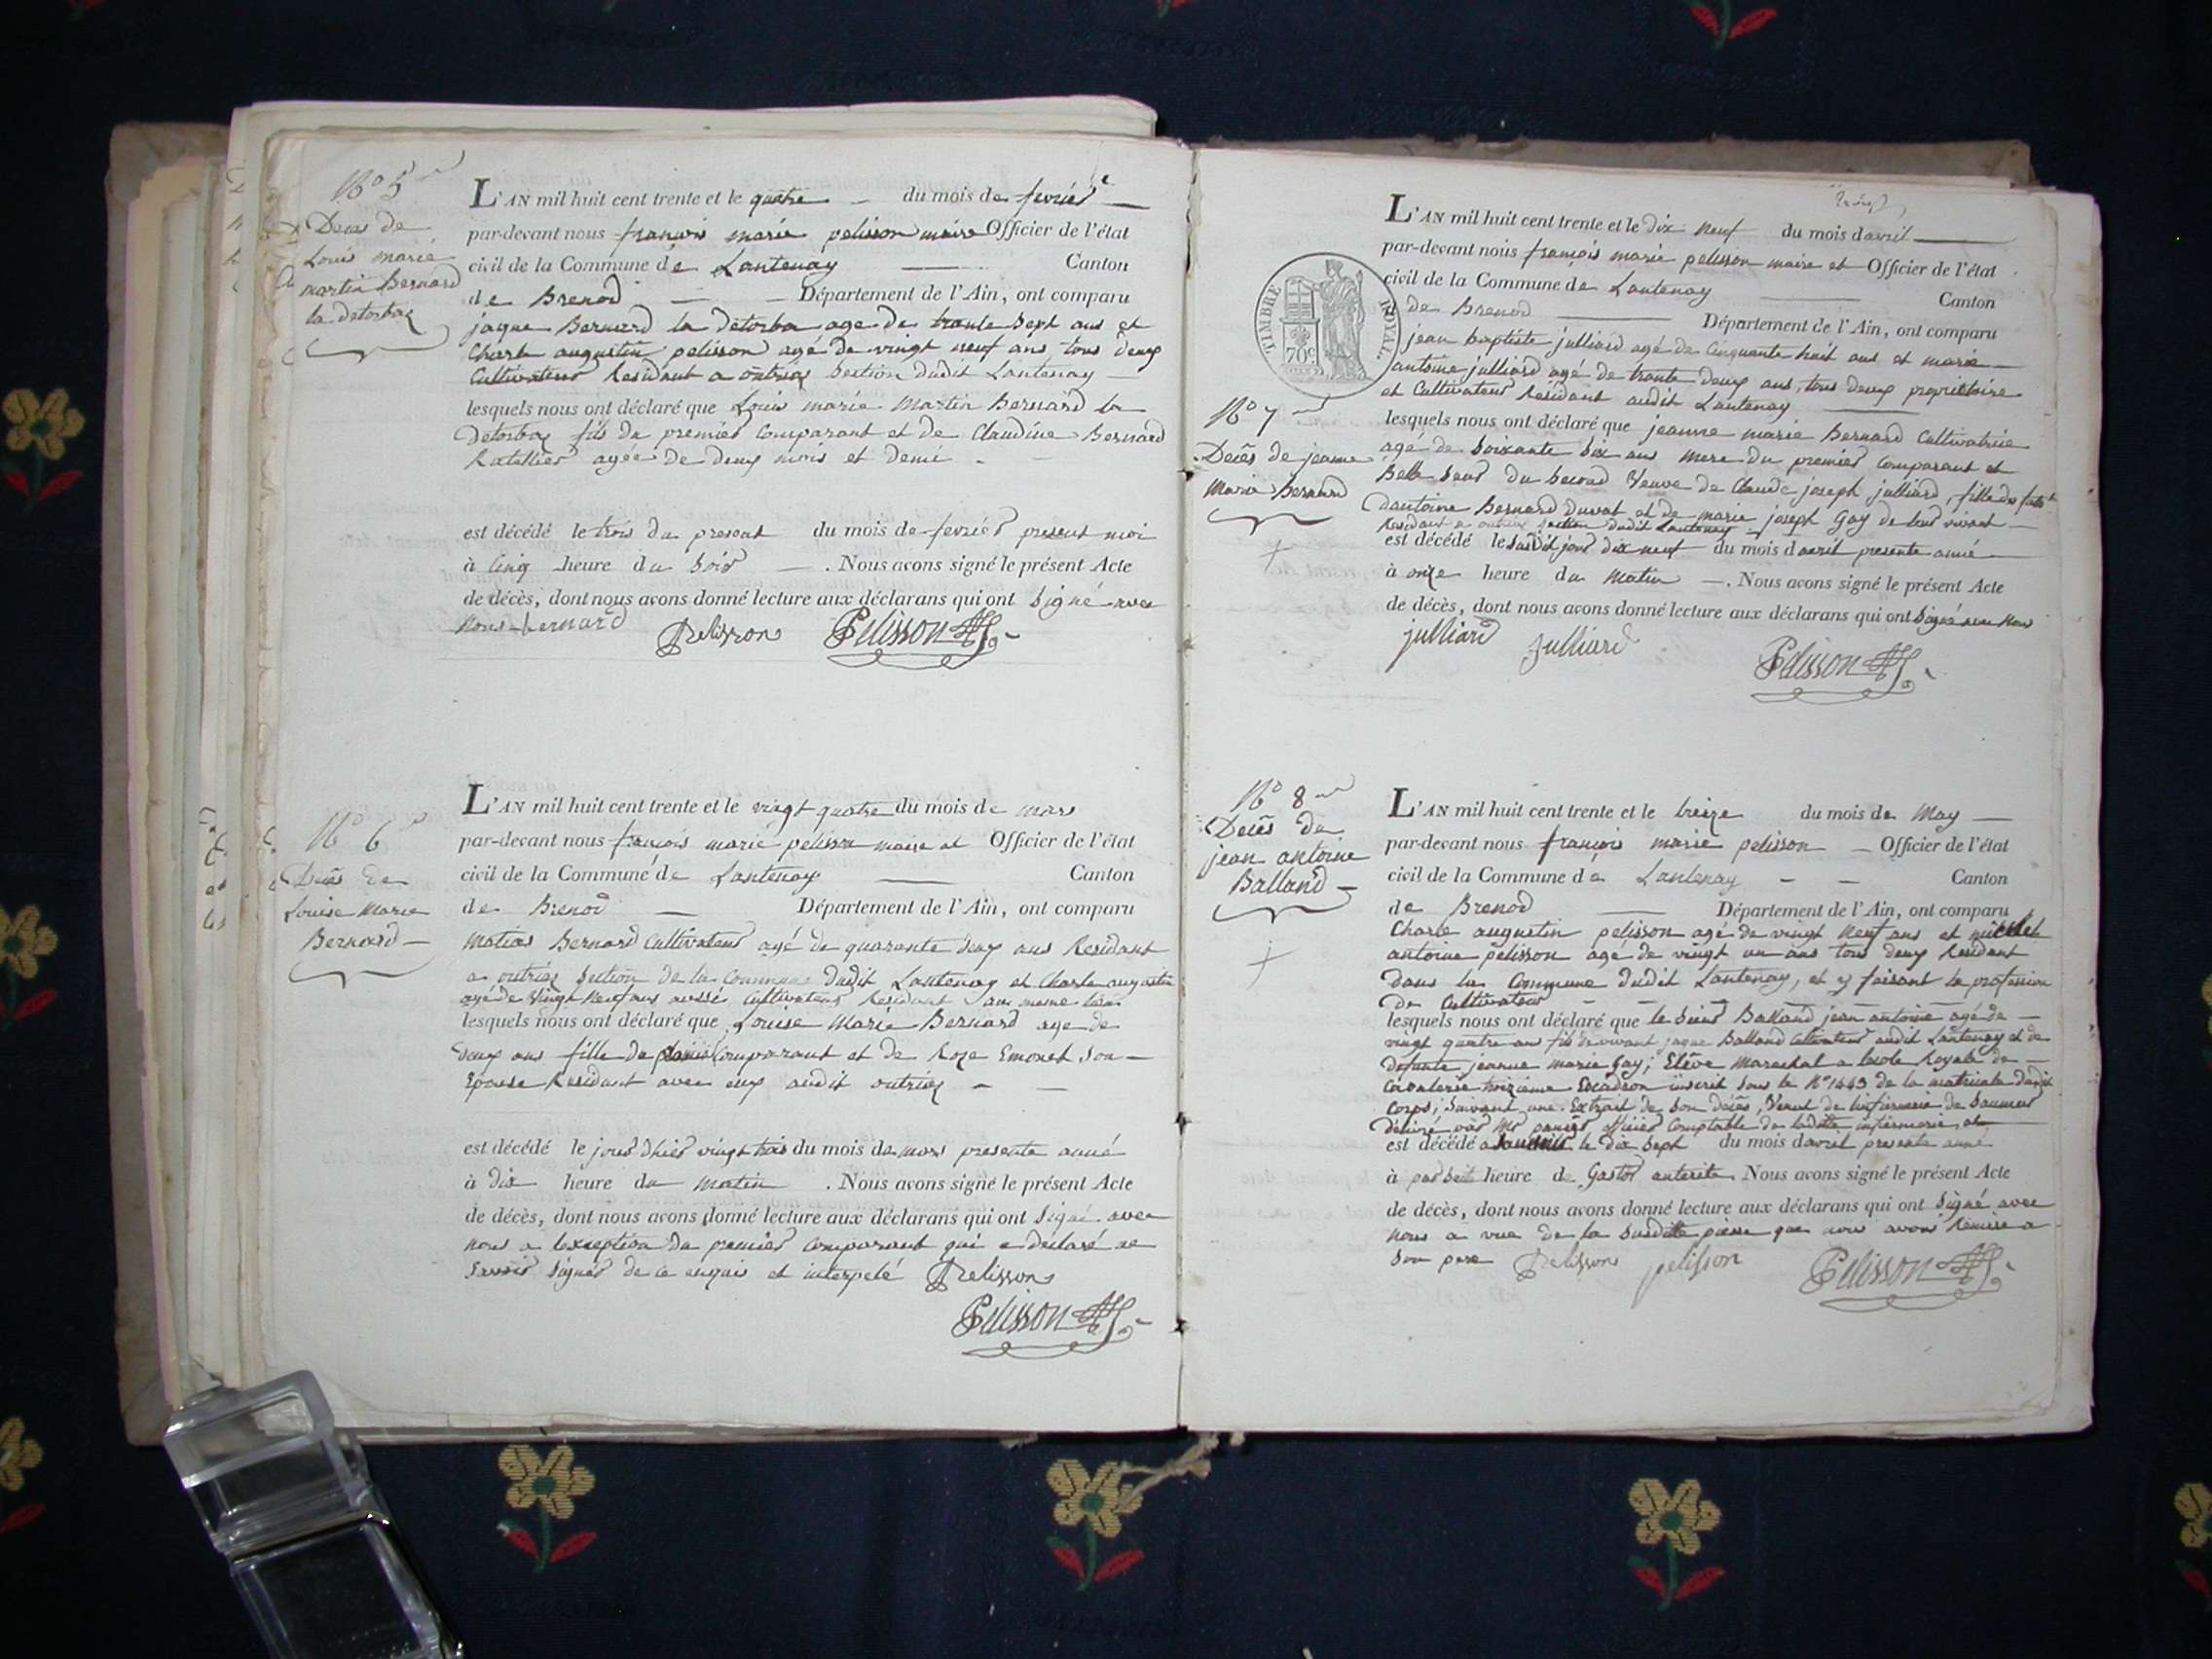 No 5
Deces de
Louis marie
martin Bernard
la detorbaz
L'AN mil huit cent trente et le quatre du mois de fevrier
par-devant nous francois marie pelisson maire Officier de l'état
civil de la Commune de Lantenay Canton
de Brenod Département de l'Ain, ont comparu
jaque Bernard la detorba age de trante sept ans et
Charle augustin pelisson agé de vingt neuf ans, tous deux
Cultivateur Residant a outriaz section dudit Lantenay
lesquels nous ont déclaré que Louis marie Martin Bernard la
Detorbaz fils du premier Comparant et de Claudine Bernard
Ratellier agée de deux mois et demi
est décédé le trois du present du mois de fevrier present moi
à Cinq heure du soir . Nous avons signé le présent Acte
de décès, dont nous avons donné lecture aux déclarans qui ont signé avec
nous bernard Pelisson Pelisson
No 6
Deces de
Louise Marie
Bernard
L'AN mil huit cent trente et le vingt quatre du mois de mars
par-devant nous francois marie pelisson maire et Officier de l'état
civil de la Commune de Lantenay Canton
de Brenod Département de l'Ain, ont comparu
Matias Bernard Cultivateur agé de quarante deux ans Residant
a outriaz Section de la Commune dudit Lantenay et Charle augustin
agé de vingt neuf ans aussi Cultivateur Residant au meme lieu
lesquels nous ont déclaré que Louise Marie Bernard age de
deux ans fille du Comparant et de Roze Emonet son
Epouse Residant avec eux audit outriaz
est décédé le jour d'hier vingt trois du mois de mars presente anné
à dix heure du matin . Nous avons signé le présent Acte
de décès, dont nous avons donné lecture aux déclarans qui ont Signé avec
nous a lexception du premier Comparant qui a déclaré ne
savoir signer de ce enquis et interpelé Pelisson
Pelisson
L'AN mil huit cent trente et le dix neuf du mois davril
par-devant nous françois marie pelisson maire et Officier de l'état
civil de la Commune de Lantenay Canton
de Brenod Département de l'Ain, ont comparu
TIMBRE ROYAL
70c
jean baptiste julliard agé de Cinquante huit ans et marie
antoine julliard agé de trante deux ans, tous deux proprietaire
et Cultivateur Résidant audit Lantenay
No 7
Decês de jeanne
Marie Bernard
lesquels nous ont déclaré que jeanne marie Bernard Cultivatrice
agé de soixante six ans mere du premier Comparant et
Belle seur du second Veuve de Claude joseph julliard, fille de
dantoine Bernard Duvat et de marie joseph Gay de leur vivant
Residant a outriaz section dudit Lantenay
est décédé le susdit jour dix neuf du mois davril presente anné
à onze heure du matin . Nous avons signé le présent Acte
de décès, dont nous avons donné lecture aux déclarans qui ont signé avec nous
julliard julliard
Pelisson
No 8
Decês de
jean antoine
Balland
L'AN mil huit cent trente et le treize du mois de May
par-devant nous françois marie pelisson Officier de l'état
civil de la Commune de Lantenay Canton
de Brenod Département de l'Ain, ont comparu
Charle augustin pelisson agé de vingt neuf ans et michel
antoine pelisson agé de vingt un ans tous deux Residant
dans la Commune dudit Lantenay, et y faisant la profession
de Cultivateur
lesquels nous ont déclaré que le sieur Balland jean antoine agé de
vingt quatre ans fils de vivant jaque Balland Cultivateur audit Lantenay et de
defunte jeanne marie Gay; Elêve Marechal a lecole Royale de
Cavalerie Escadron inscrit sous le No 1443 de la matricule dudit
Corps; suivant une Extrait de son décès, Venant de linfirmerie de saumur
délivré par Mr officier Comptable de ladite infirmerie,
est décédé a saumur le dix sept du mois davril presente anné
à heure de Gastro anterite Nous avons signé le présent Acte
de décès, dont nous avons donné lecture aux déclarans qui ont signé avec
nous a vue de la susditte piesse que nous avons Remise a
son pere Pelisson pelisson Pelisson